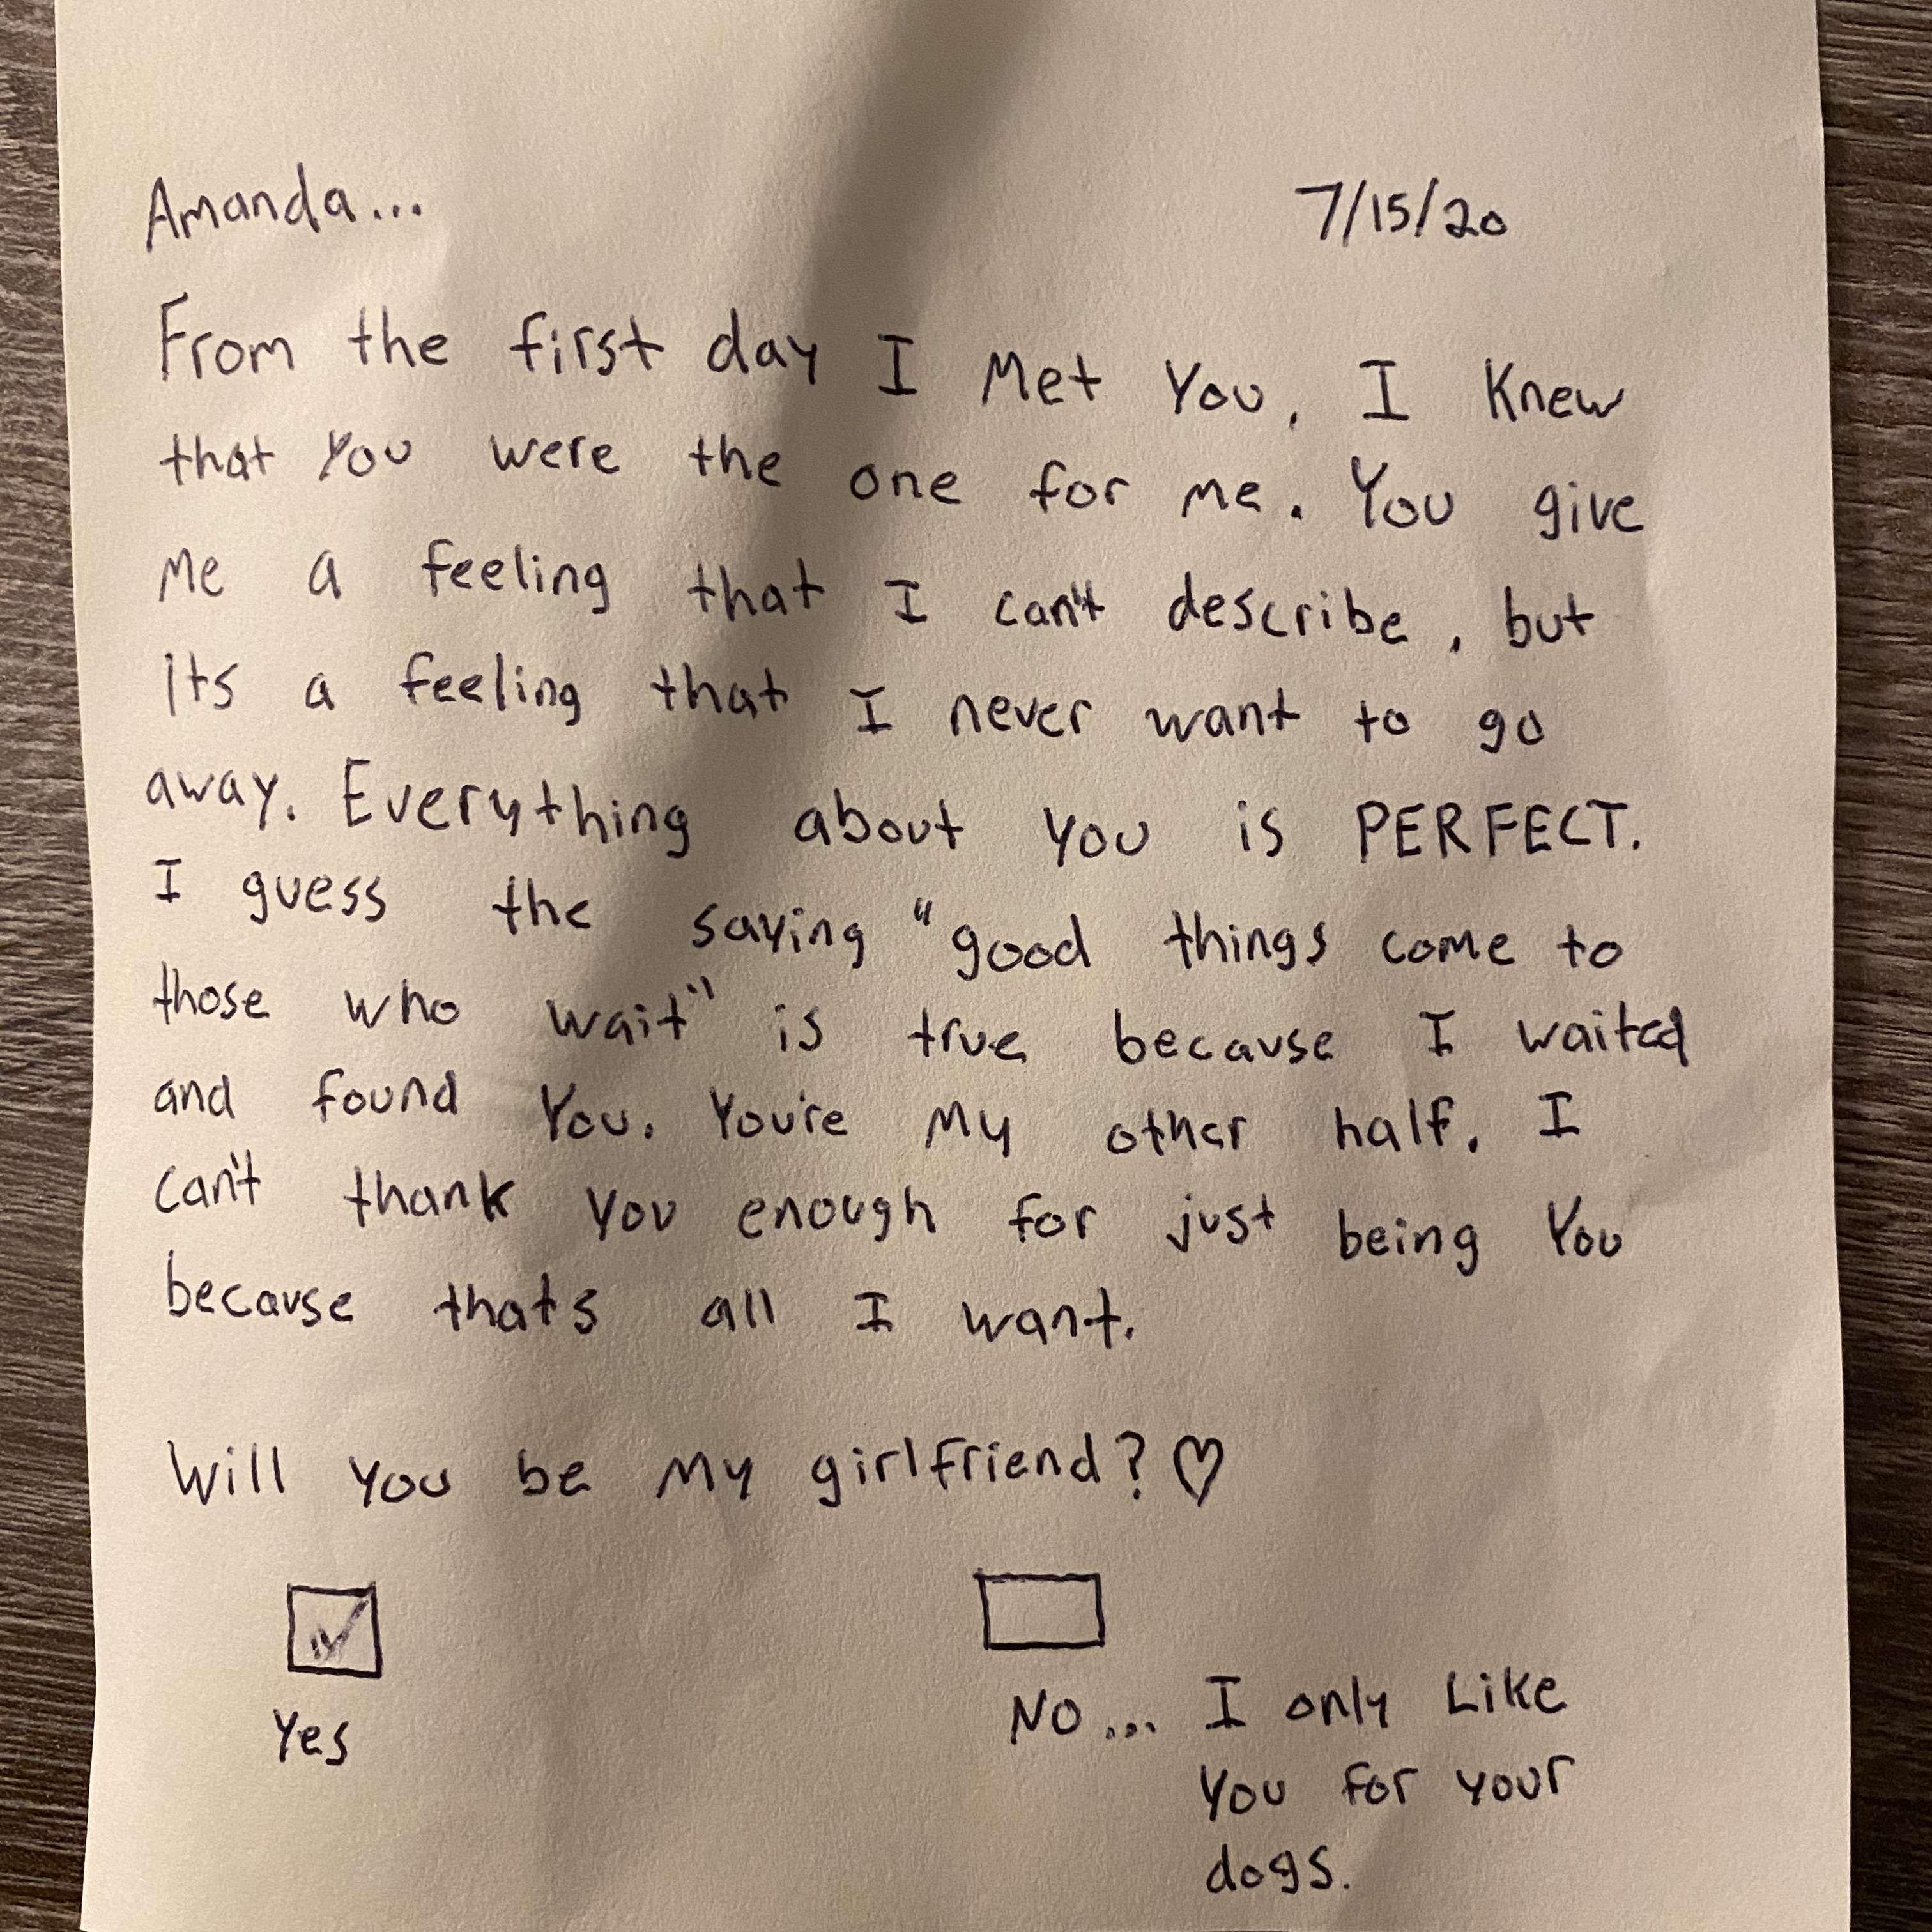 Amanda... 7/15/20
From the first day I Met You, I Knew
that You were the one for me. You give
Me a feeling that I can't describe, but
Its a feeling that I never want to go
away. Everything about you is PERFECT.
I guess the saying "good things come to
those who wait" is true because I waited
and found You. You're My other half. I
can't thank you enough for just being You
because thats all I want.
Will you be My girlfriend? ♡
Yes
NO... I only Like
You for your
dogs.